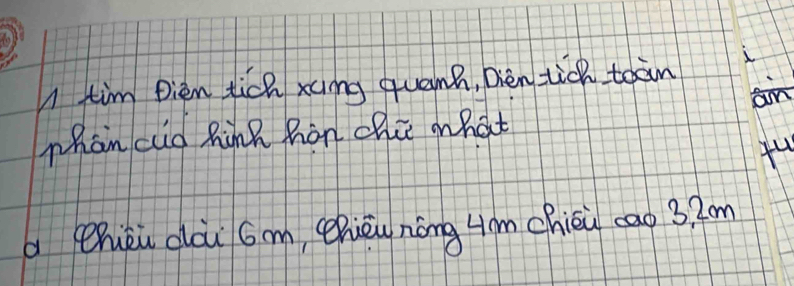 1 tìm Diện tích xung quanh, Diện tích toàn
phần củo hình hộn chữ nhật
a chiều dài 6m, chiều rộng 4m chiều cao 3,2m
i
ần
tư